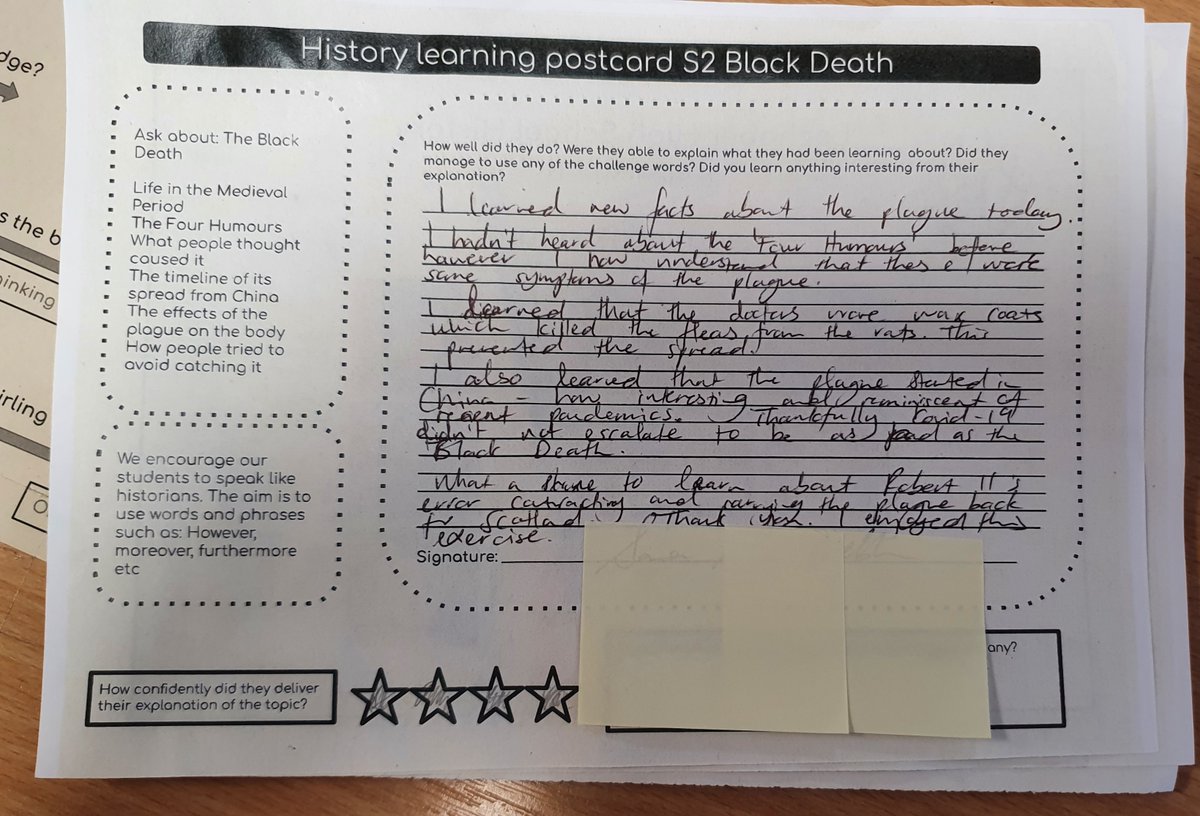 dge?
s the b
inking
irling
History learning postcard S2 Black Death
Ask about: The Black
Death
Life in the Medieval
Period
The Four Humours
What people thought
caused it
The timeline of its
spread from China
The effects of the
plague on the body
How people tried to
avoid catching it
We encourage our
students to speak like
historians. The aim is to
use words and phrases
such as: However,
moreover, furthermore
etc
How well did they do? Were they able to explain what they had been learning about? Did they
manage to use any of the challenge words? Did you learn anything interesting from their
explanation?
I learned new facts about the plague today.
I hadn't heard about the 'Four Humours' before
however I now understand that were
some symptoms of the plague.
I learned that the doctors wore wax coats
which killed the fleas from the rats. This
prevented the spread.
I also learned that the plague started in
China - how interesting and reminiscent of
recent pandemics. Thankfully Covid-19
didn't not escalate to be as bad as the
Black Death.
What a shame to learn about Robert II's
error contracting and carrying the plague back
to Scotland. Thank you. I enjoyed this
exercise.
Signature:
How confidently did they deliver
their explanation of the topic?
any?